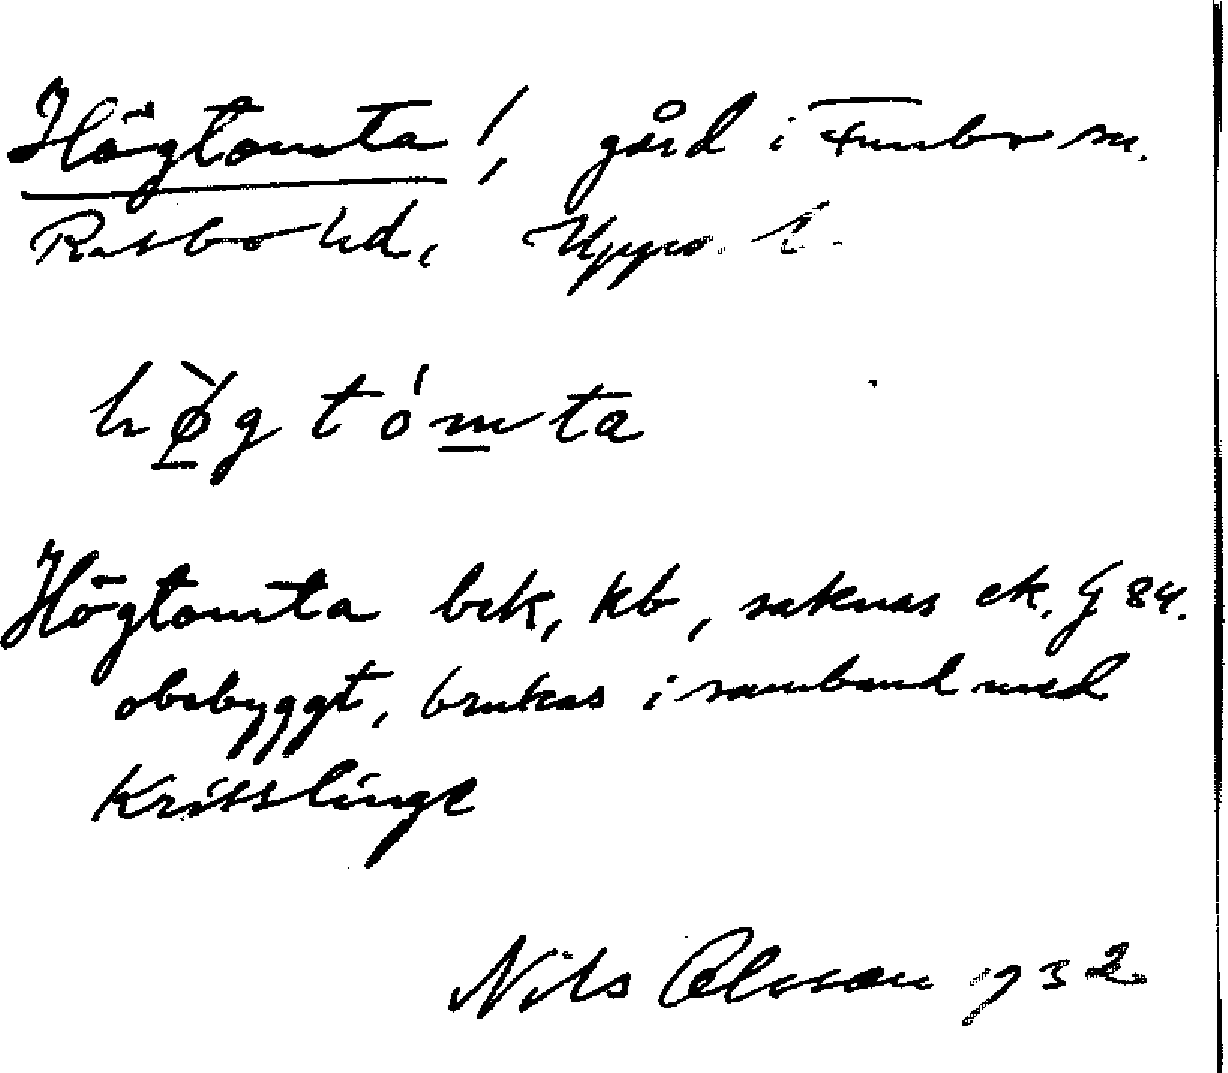 Högtomta!, gård i Funbo sn.
Rasbo hd, Upps. l.
hø̀g tómta
Högtomta bek, kb, saknas ek. G 84.
obebyggt, brukas i samband med
Krisslinge
Nils Olsson 1932